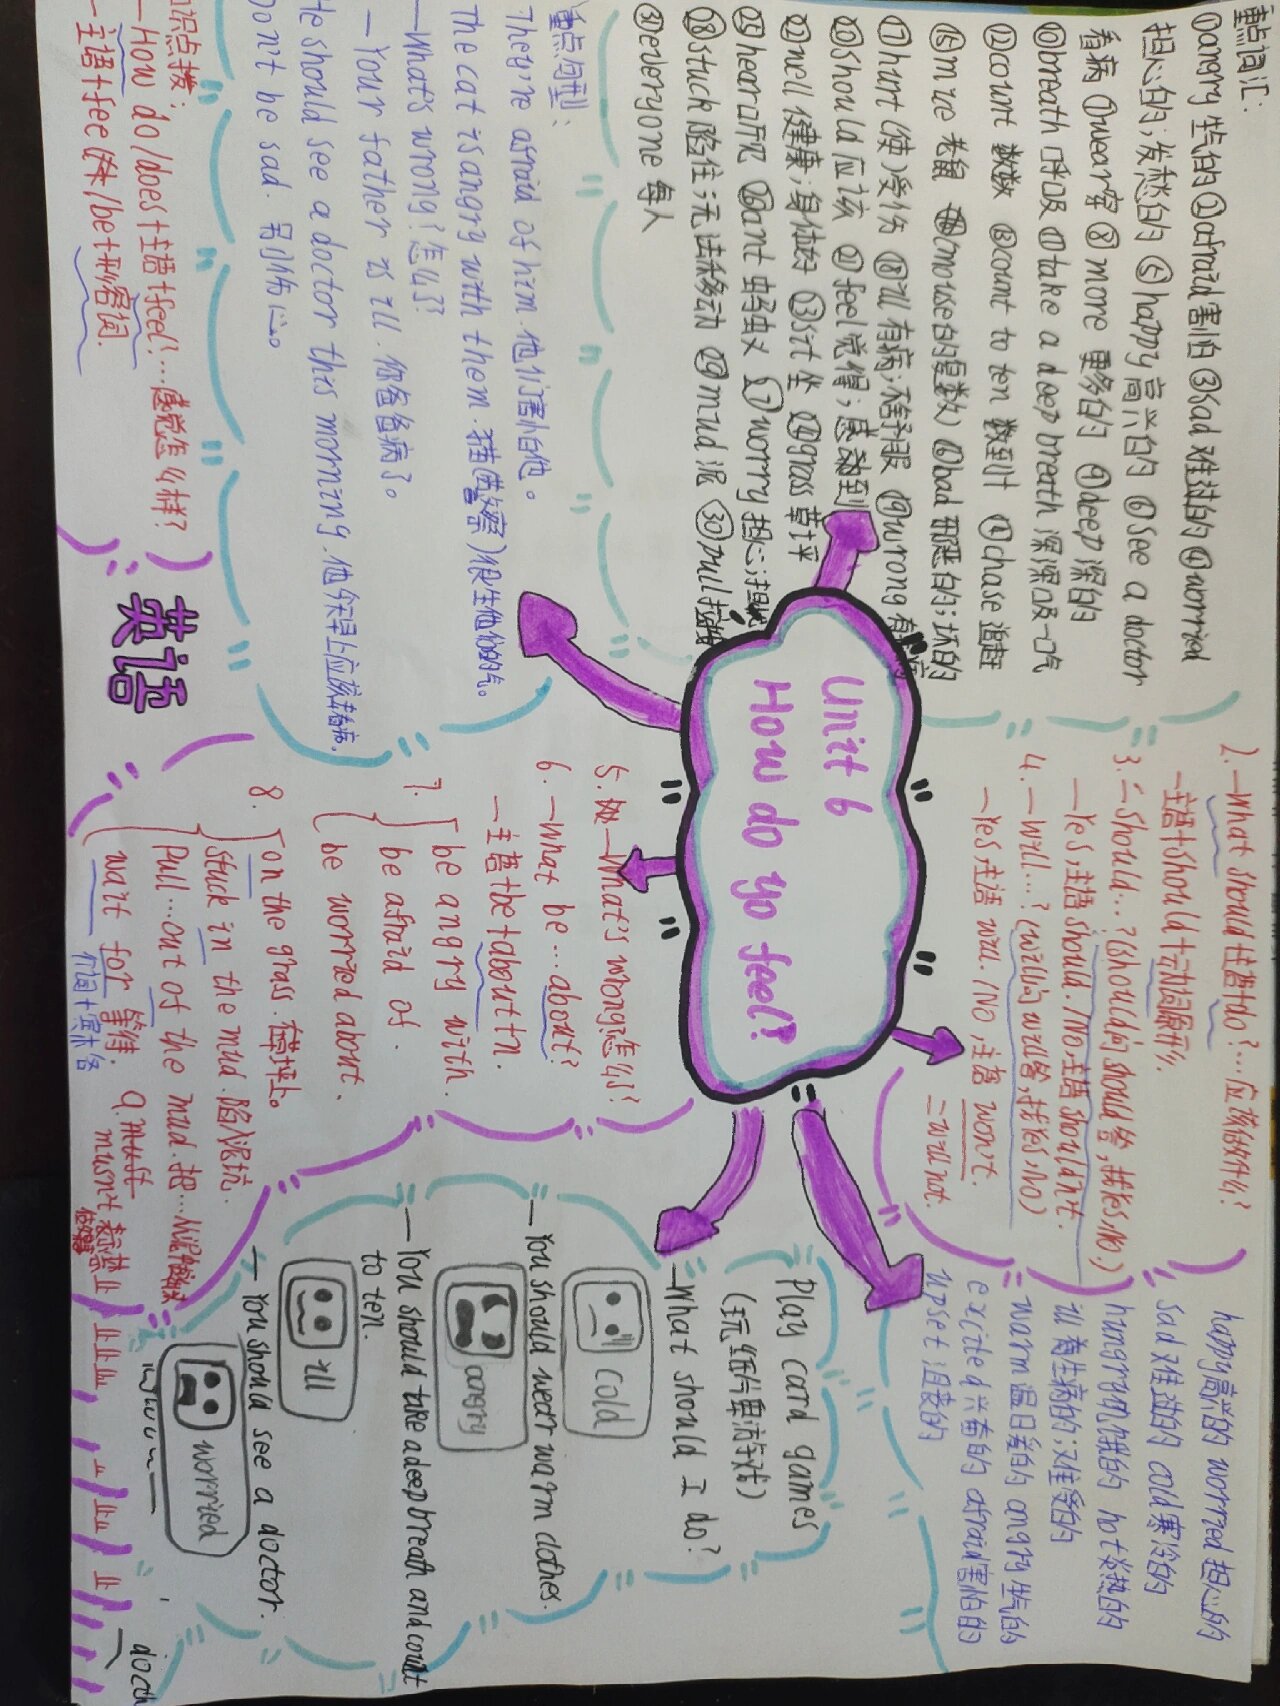 重点词汇:
①angry 生气的 ②afraid 害怕 ③sad 难过的 ④worried
担心的;发愁的 ⑤happy 高兴的 ⑥see a doctor
看病 ⑦wear 穿 ⑧more 更多的 ⑨deep 深的
⑩breath 呼吸 ⑪take a deep breath 深深吸一口气
⑫count 数数 ⑬count to ten 数到十 ⑭chase 追赶
⑮mice 老鼠 (mouse的复数) ⑯bad 邪恶的;坏的
⑰hurt (使)受伤 ⑱ill 有病;不舒服 ⑲wrong 有
⑳should 应该 ㉑feel 觉得;感到
㉒well 健康;身体好 ㉓sit 坐 ㉔grass 草坪
㉕hear 听见 ㉖ant 蚂蚁 ㉗worry 担心;担忧
㉘stuck 陷住;无法移动 ㉙mud 泥 ㉚pull 拉
㉛everyone 每人
重点句型:
They're afraid of him. 他们害怕他。
The cat is angry with them. 猫(警察)很生他们的气。
—What's wrong? 怎么了?
—Your father is ill. 你爸爸病了。
He should see a doctor this morning. 他今天早上应该去看病.
Don't be sad. 别伤心。
识点拨:
—How do/does+主语+feel?…感觉怎么样?
—主语+feel /be+形容词.
英语
Unit 6
How do yo feel?
2.—What should+主语+do?…应该做什么?
—主语+should+动词原形.
3.—Should…?(should问should答,找Yes,no.)
—Yes,主语should./No,主语shouldn't.
4.—Will…?(will问will答,找Yes,no)
—Yes,主语will./No,主语won't.
=will not.
5.—What's wrong?怎么了?
6.—What be…about?
—主语+be+about+n.
7. be angry with.
be afraid of.
be worried about.
8. on the grass.在草坪上。
stuck in the mud.陷入泥坑.
Pull…out of the mud.把…从泥中
wait for 等待.
介词+宾格
9.must
musn't 表示禁止
happy高兴的 worried 担心的
sad 难过的 cold寒冷的
hungry饥饿的 hot炎热的
ill 有生病的;难受的
warm 温日爰的 angry 生气的
excited 兴奋的 afraid害怕的
upset 沮丧的
Play card games
(玩纸片票游戏)
—What should I do?
cold
—You should wear warm clothes
angry
—You should take a deep breath and count
to ten.
ill
—You should see a doctor.
worried